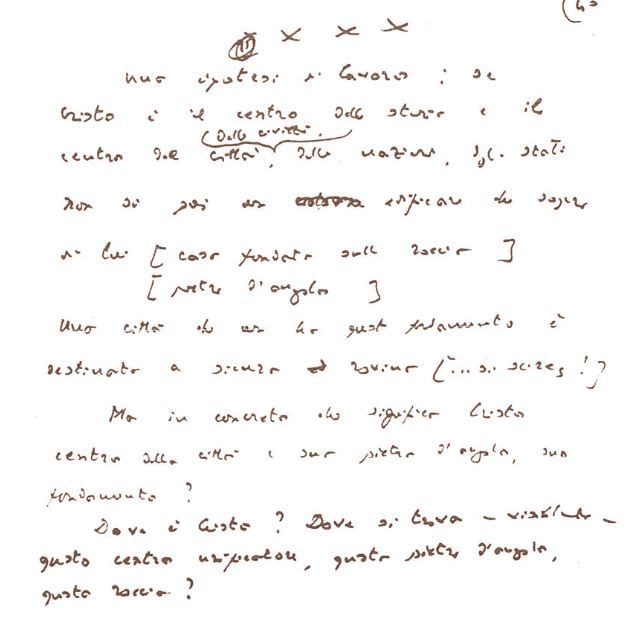 x x x
una ipotesi di lavoro: se
Cristo è il centro della storia e il
(delle civiltà,
centro delle città, delle nazioni, degli stati
non si può non edificare che sopra
di lui [casa fondata sulla roccia]
[pietra d'angolo]
Una città che non ha questo fondamento è
destinata a sicura rovina [... si scires!]
Ma in concreto che significa Cristo
centro della città e sua pietra d'angolo, suo
fondamento?
Dove è Cristo? Dove si trova - visibilmente -
questo centro unificatore, questa pietra d'angolo,
questa roccia?